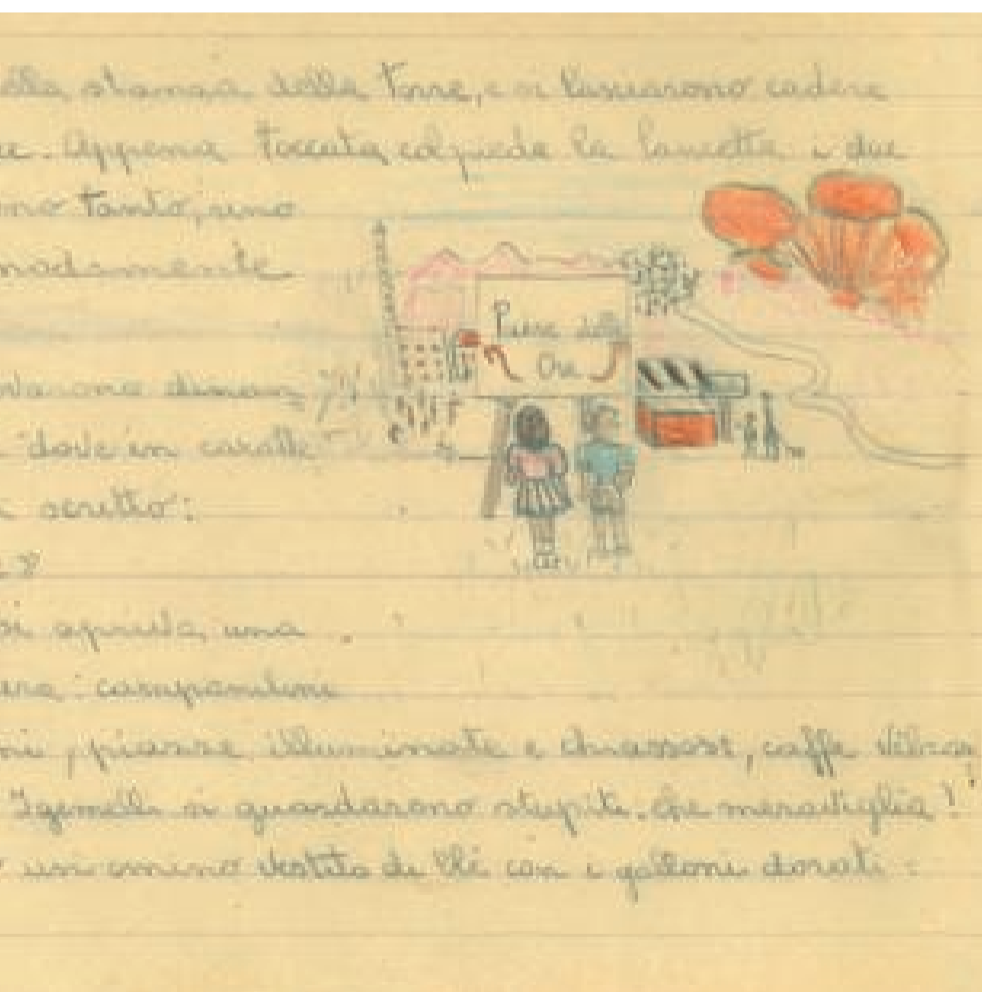 ella stanza della Torre, e si lasciarono cadere
Appena Toccata col piede la lancetta i due
ono tanto, uno
modamente
Paese delle
Ore
varono dinan
dove in caratte
scritto:
si apriva una
campanilini
ni, piazze illuminate e chiassose, caffe
I gemelli si guardarono stupiti. che meraviglia!
un omino vestito di blù con i galloni dorati: